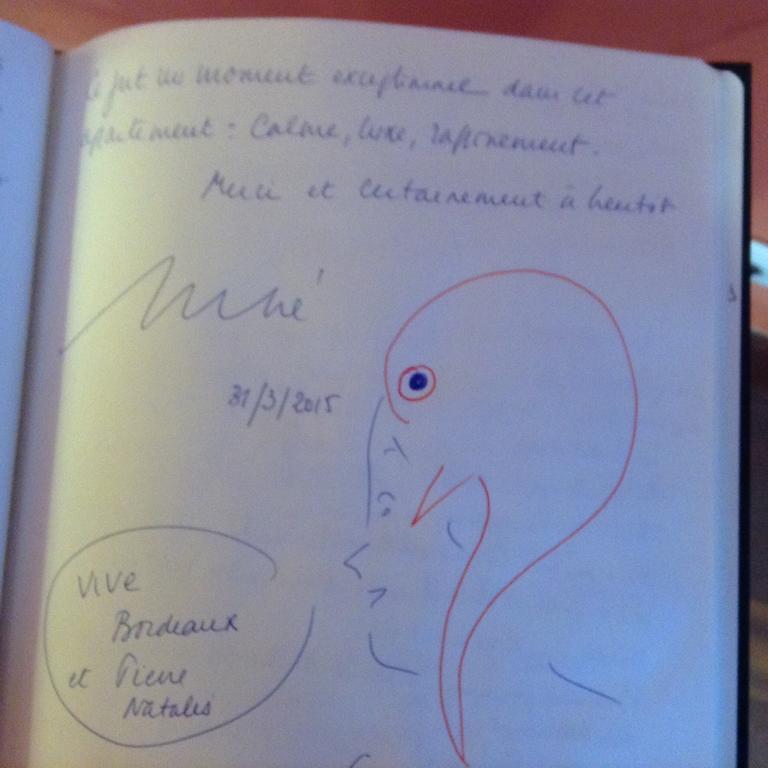 Ce fut un moment exceptionnel dans cet
appartement : Calme, luxe, raffinement.
Merci et certainement à bientôt
31/3/2015
VIVE
Bordeaux
et Pierre
Natalis